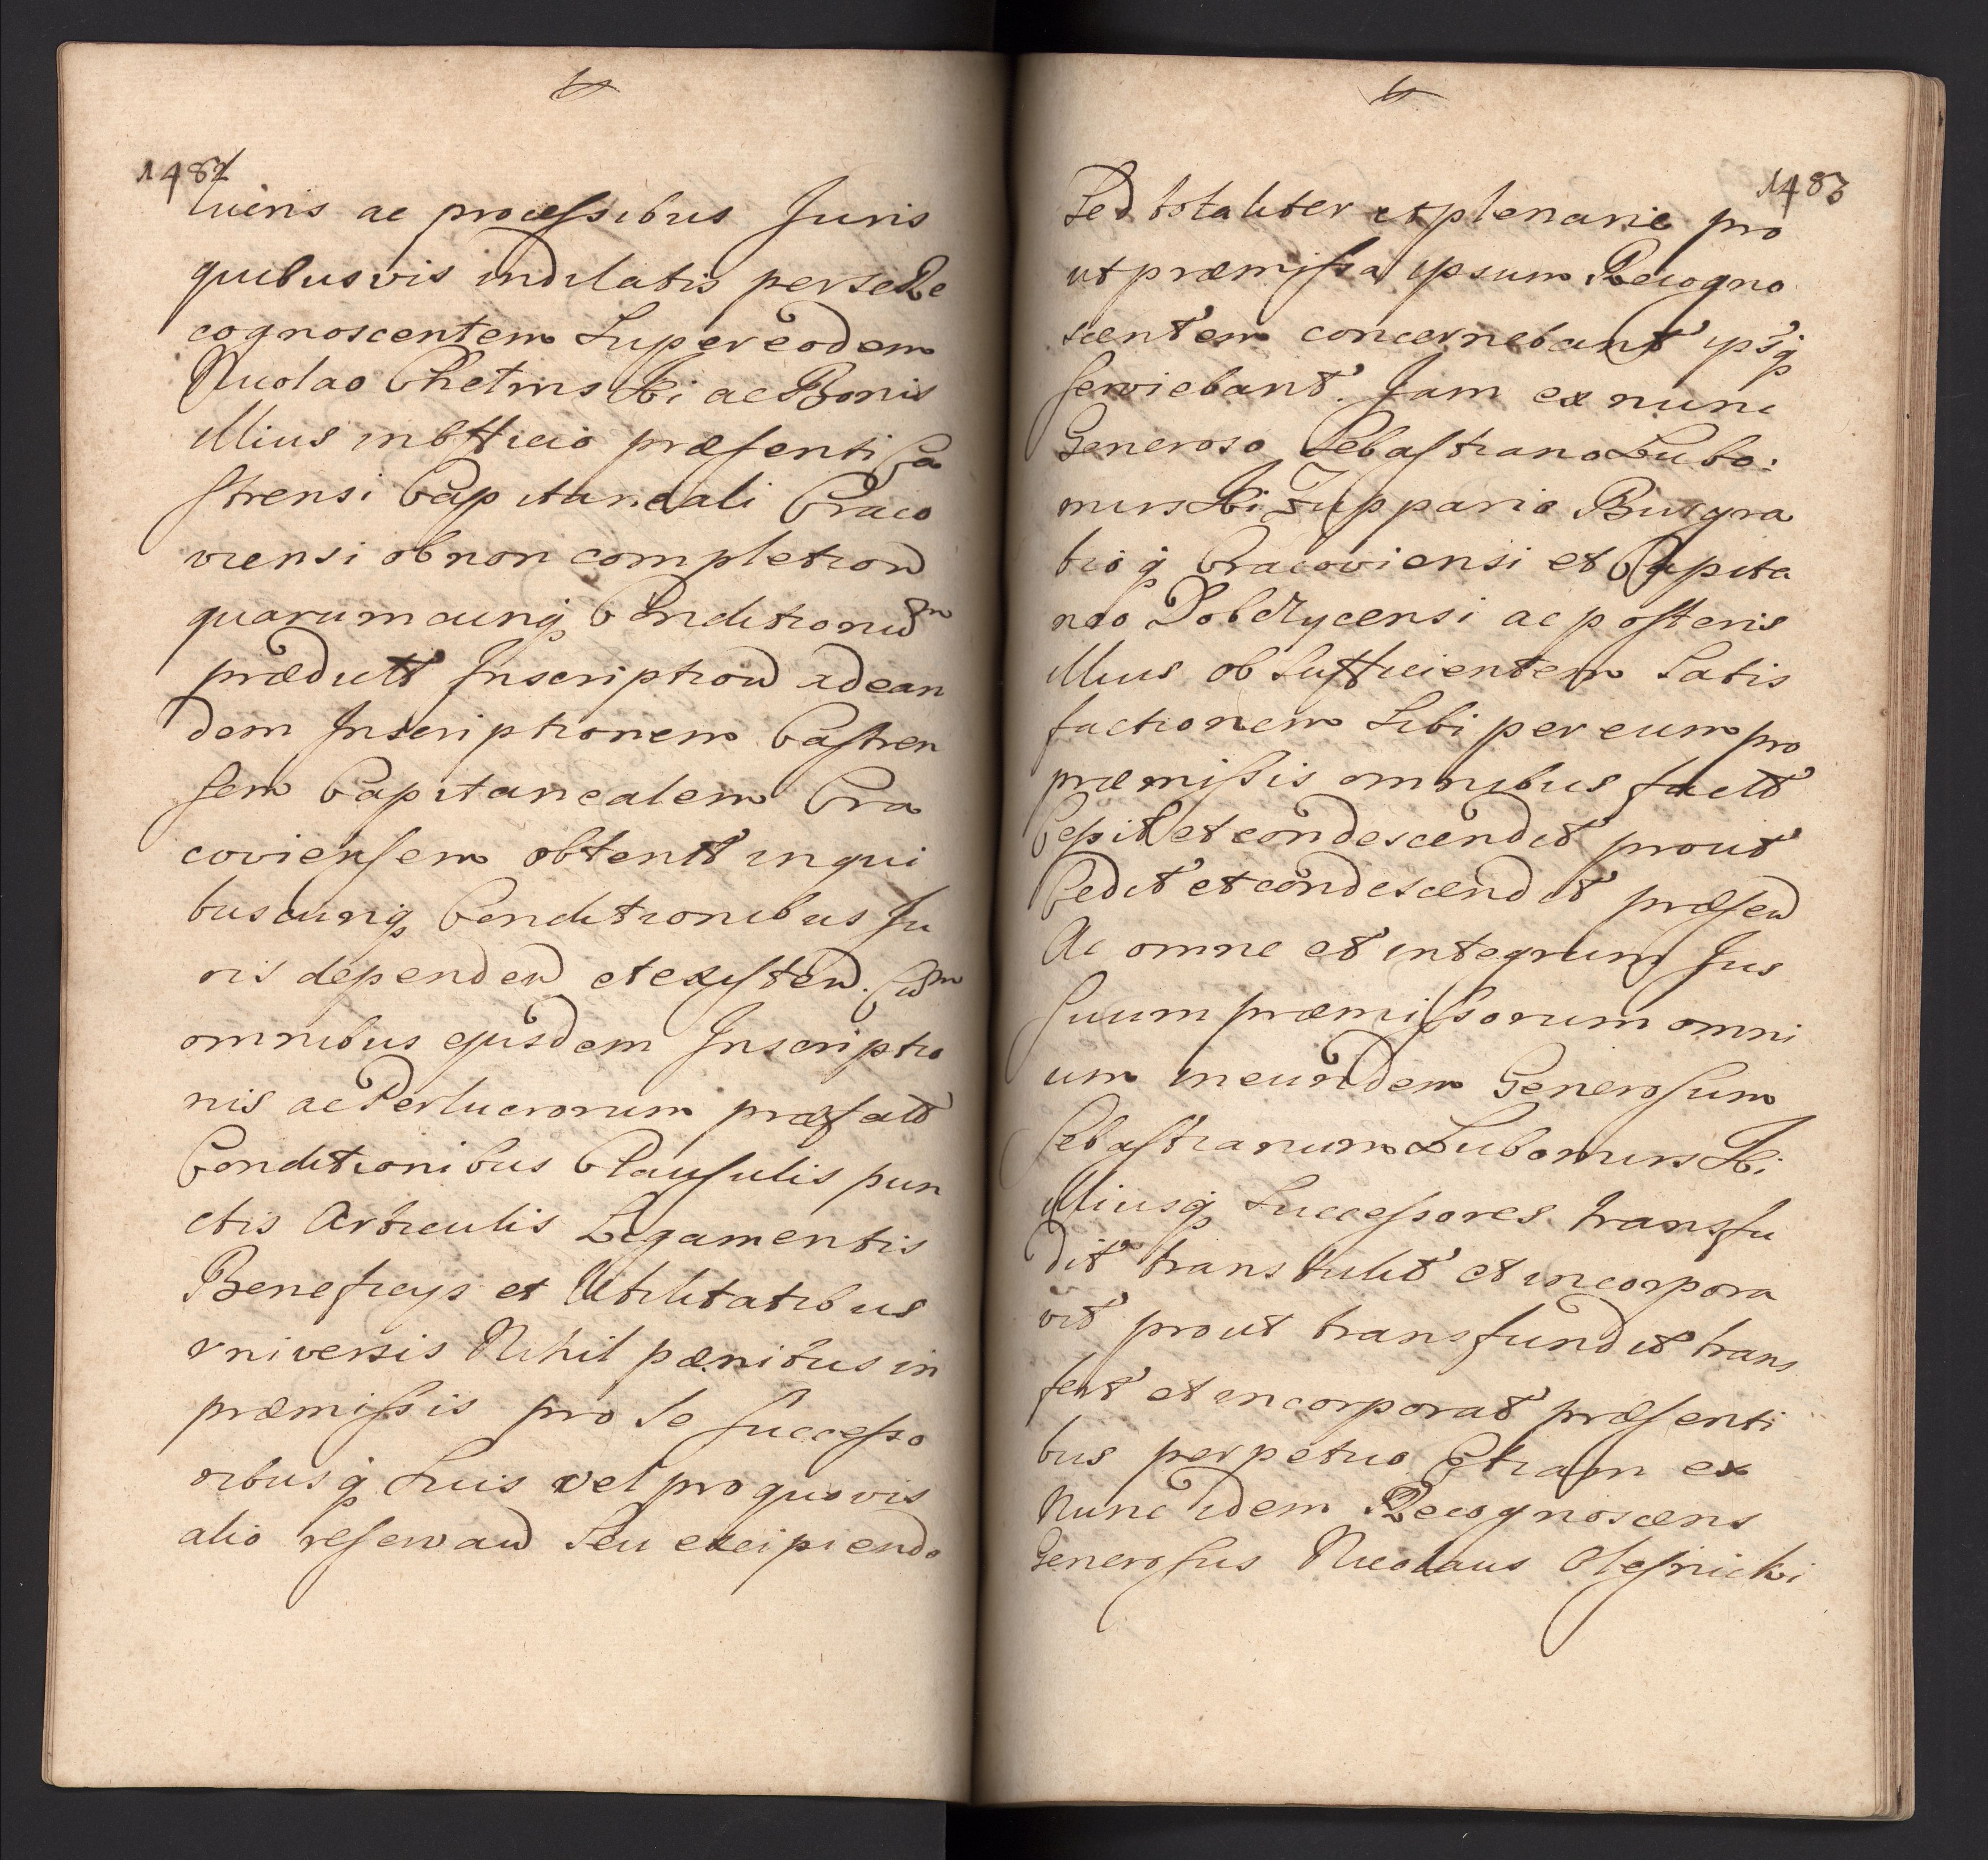 1482
lucris ac processibus Juris
quibusvis indilatis per se Re
cognoscentem Super eodem
Nicolao Chelmski ac Bonis
illius in Officio præsenti Ca
strensi Capitaneali Craco
viensi ob non completion
quarumcunq Conditionum
prædictt Inscription ad ean
dem Inscriptionem Castren
sem Capitanealem Cra
coviensem obtentt in qui
buscunq Conditionibus Ju
ris dependen et existen. Cum
omnibus ejusdem Inscriptio
nis ac Perlucrorum præfatt
Conditionibus Clausulis pun
ctis Articulis Ligamentis
Beneficijs et Utilitatibus
vniversis Nihil pænitus in
præmissis pro Se Successo
ribusq Suis vel pro quovis
alio reservan Seu excipiendo
1483
Sed totaliter et plenarie pro
ut præmissa ipsum Recogno
scentem concernebant ipsiq
serviebant. Jam ex nunc
Generoso Sebastiano Lubo:
mirski Zuppario Burgra
bioq Cracoviensi et Capita
neo Dobczycensi ac posteris
illius ob Sufficientem Satis
factionem Sibi per eum pro
præmissis omnibus factt
Cessit et condescendit prout
Cedit et condescendit præsen
Ac omne et integrum Jus
Suum præmissorum omni
um in eundem Generosum
Sebastianum Lubomirski
illiusq Successores transfu
dit transtulit et incorpora
vit prout transfundit trans
fert et incorporat præsenti
bus perpetuo Etiam ex
Nunc idem Recognoscens
Generosus Nicolaus Olesnicki